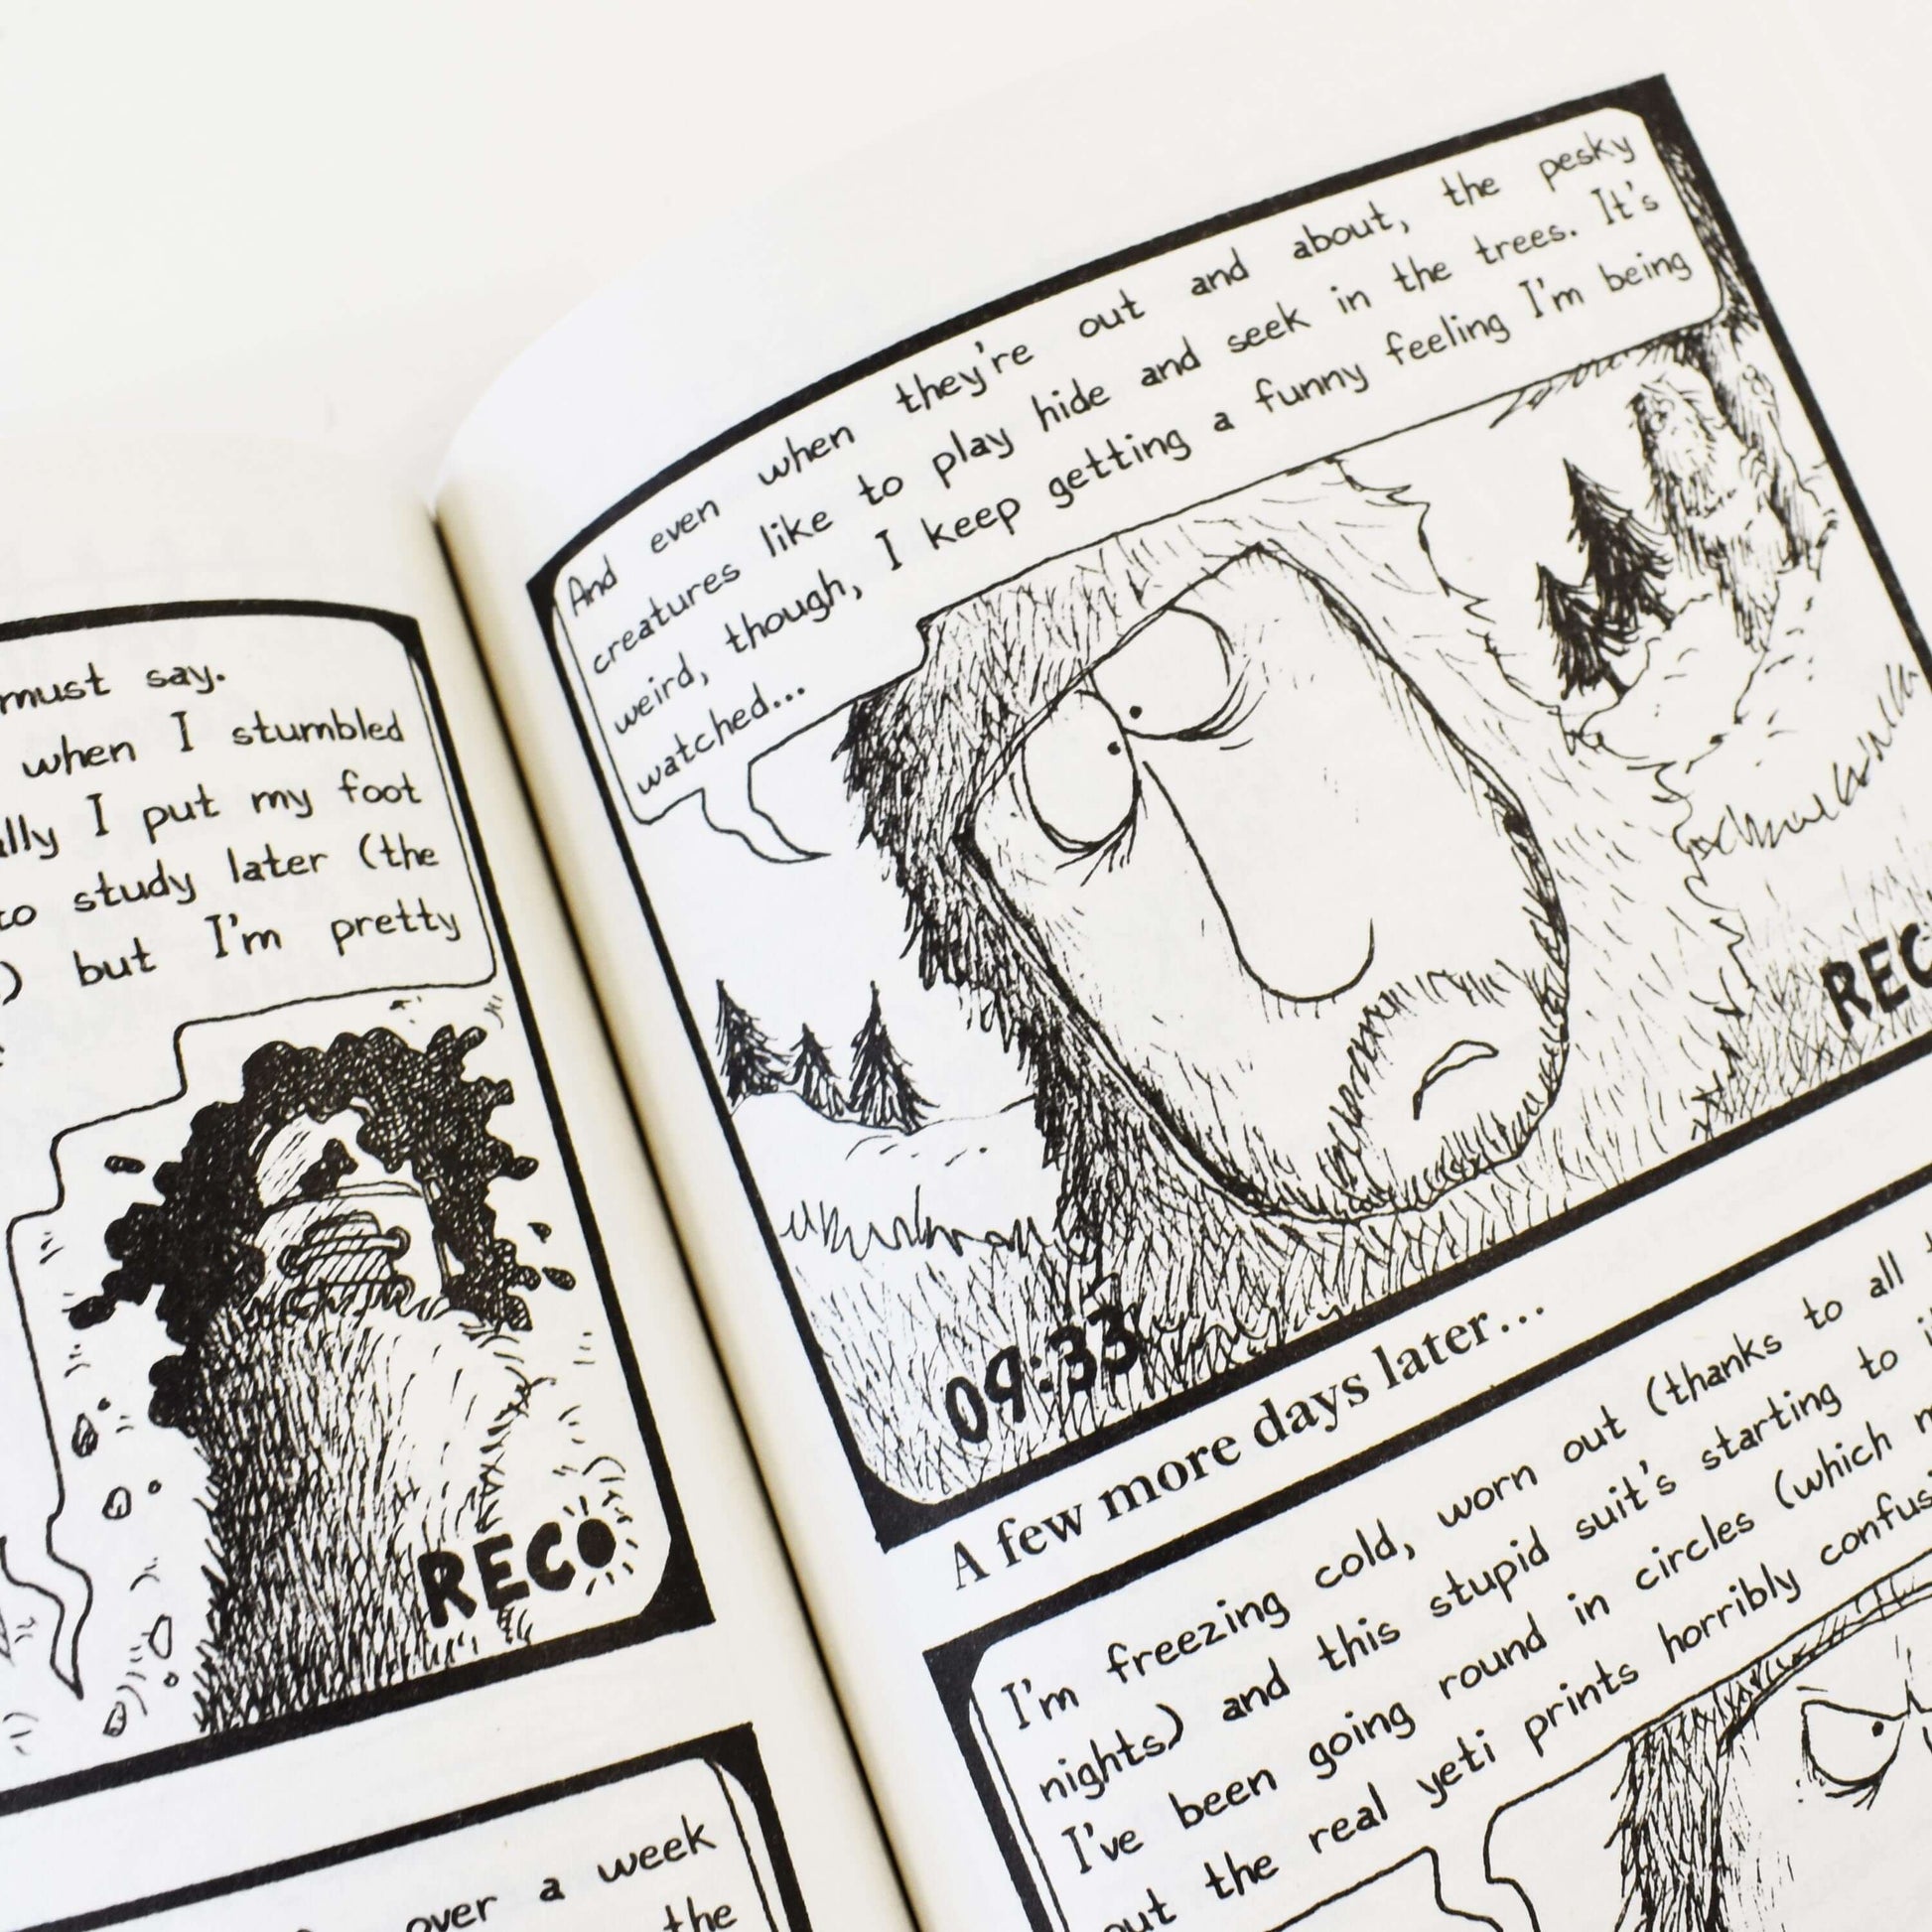 must say.
when I stumbled
I put my foot
to study later (the
) but I'm pretty
REC
over a week
the
And even when they're out and about, the pesky
creatures like to play hide and seek in the trees. It's
weird, though, I keep getting a funny feeling I'm being
watched...
09:33
REC
A few more days later...
I'm freezing cold, worn out (thanks to all
nights) and this stupid suit's starting to
I've been going round in circles (which
out the real yeti prints horribly